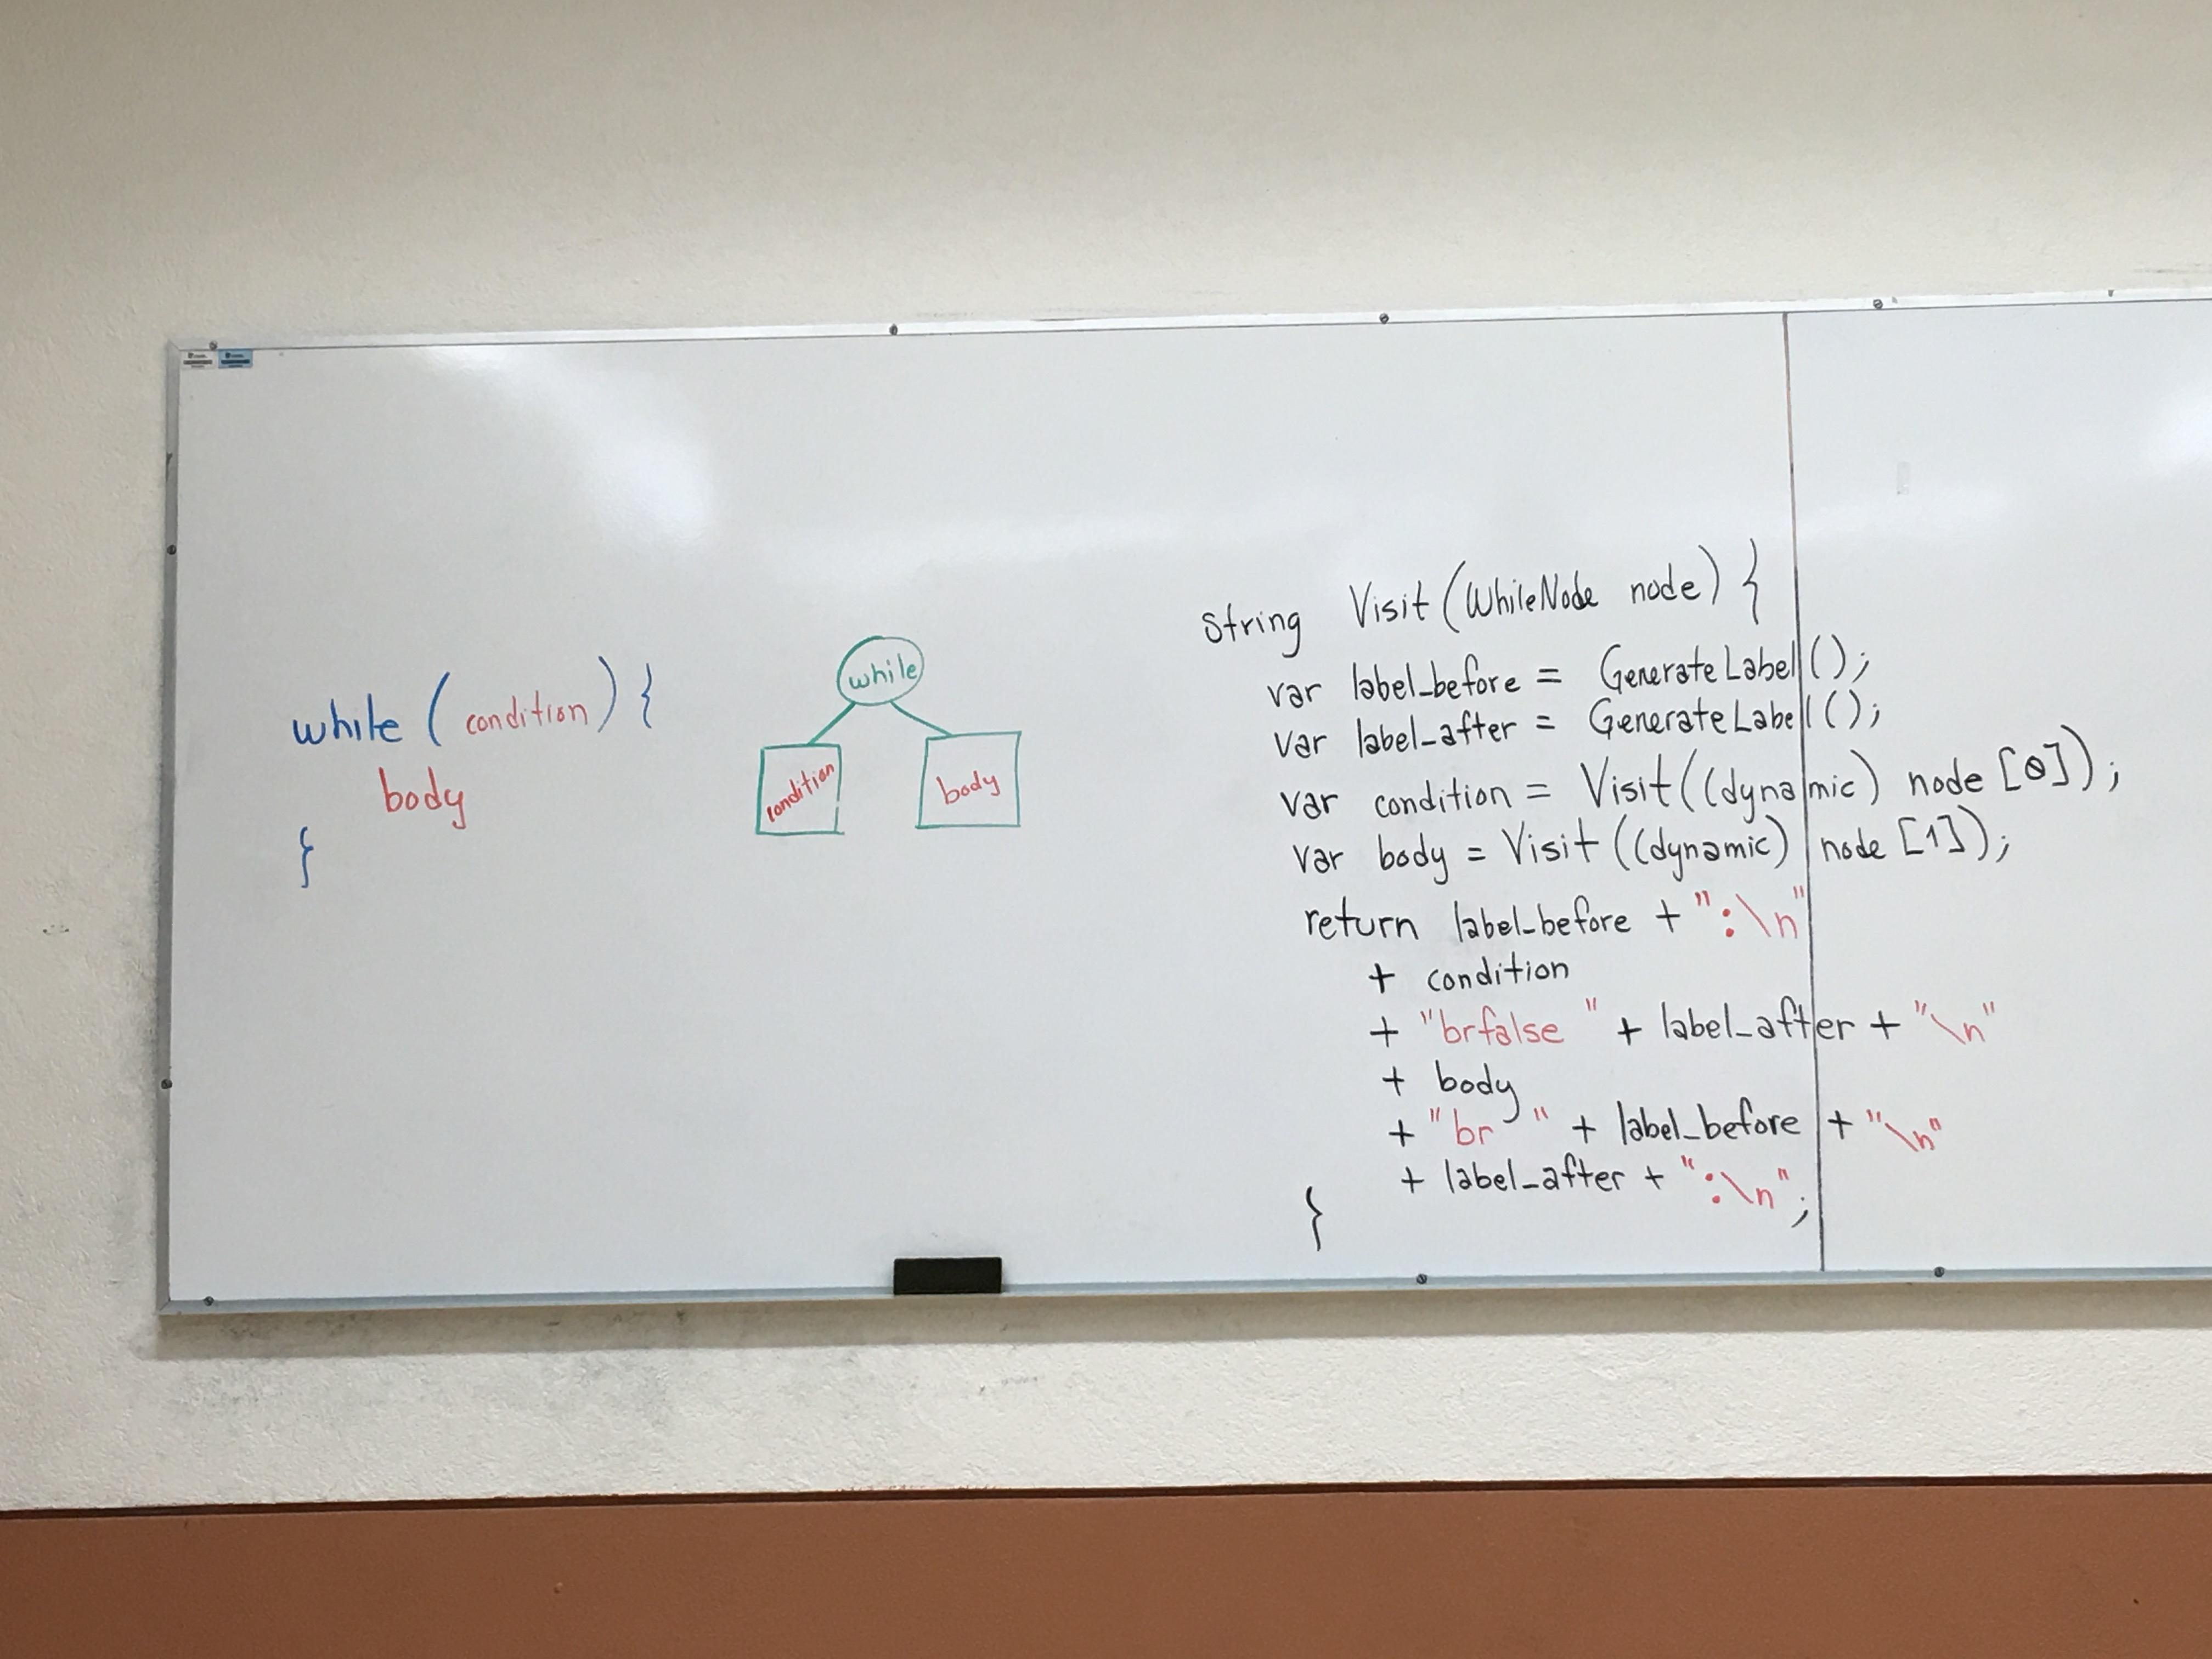 while (condition) {
body
}
while
condition
body
string Visit(WhileNode node) {
var label_before = GenerateLabel();
var label_after = GenerateLabel();
var condition = Visit((dynamic) node [0]);
var body = Visit((dynamic) node [1]);
return label_before + ":\n"
+ condition
+ "brfalse " + label_after + "\n"
+ body
+ "br " + label_before + "\n"
+ label_after + ":\n";
}